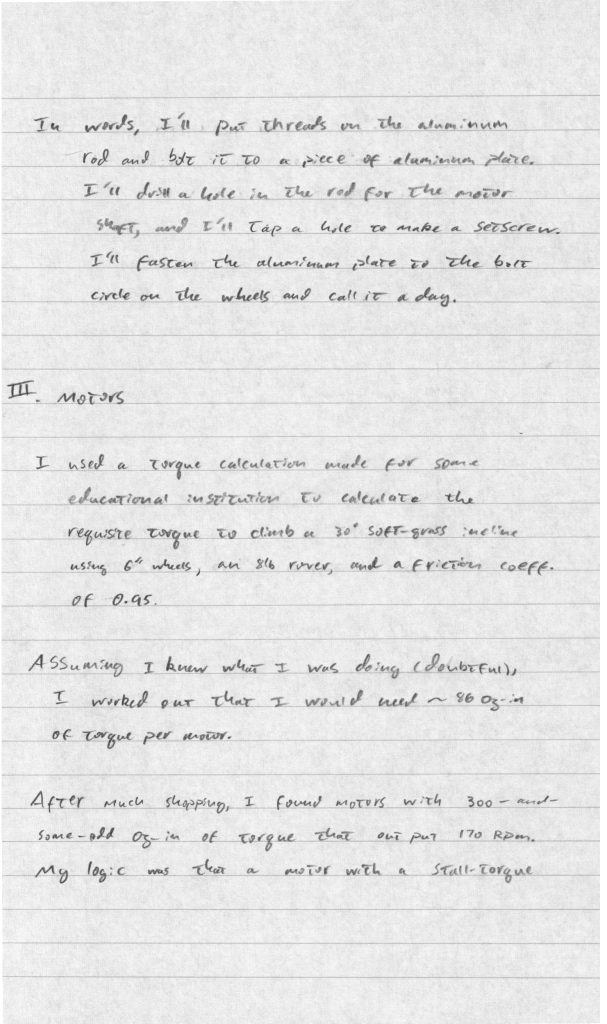 In words, I'll put threads on the aluminum
rod and bolt it to a piece of aluminum plate.
I'll drill a hole in the rod for the motor
shaft, and I'll tap a hole to make a setscrew.
I'll fasten the aluminum plate to the bolt
circle on the wheels and call it a day.
III. Motors
I used a torque calculation made for some
educational institution to calculate the
requisite torque to climb a 30° soft-grass incline
using 6" wheels, an 8lb rover, and a friction coeff.
of 0.95.
Assuming I knew what I was doing (doubtful),
I worked out that I would need ~ 86 oz-in
of torque per motor.
After much shopping, I found motors with 300-and-
some-odd oz-in of torque that output 170 RPM.
My logic was that a motor with a stall-torque